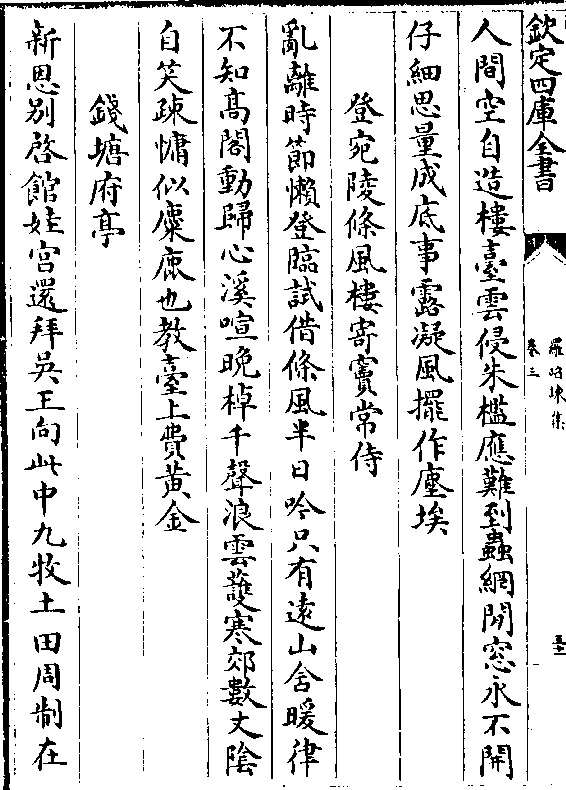 欽定四庫全書
羅昭諫集
卷三
人間空自造樓臺雲侵朱檻應難到蟲網閒窓永不開
仔細思量成底事露凝風擺作塵埃
登宛陵條風樓寄竇常侍
亂離時節懶登臨試借條風半日吟只有遠山含暖律
不知髙閣動歸心溪喧晚棹千聲浪雲護寒郊數丈隂
自笑疎慵似麋鹿也教臺上費黄金
錢塘府亭
新恩別啓館娃宮還拜吳王向此中九牧土田周制在